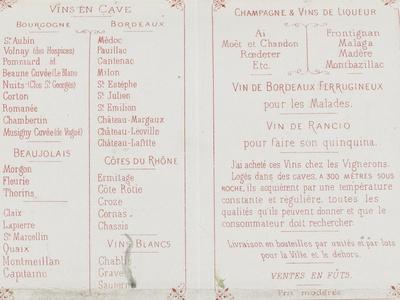 VINS EN CAVE
BOURGOGNE
St Aubin
Volnay (des Hospices)
Pommard et
Beaune Cuvée (Le Blanc
Nuits (Clos St Georges)
Corton
Romanée
Chambertin
Musigny Cuvée (de Vogué)
BEAUJOLAIS
Morgon
Fleurie
Thorins
Claix
Lapierre
St Marcellin
Quaix
Montmeillan
Capitaine
BORDEAUX
Médoc
Pauillac
Cantenac
Milon
St Estèphe
St Julien
St Emilion
Château-Margaux
Château-Léoville
Château-Lafitte
CÔTES DU RHÔNE
Ermitage
Côte Rôtie
Croze
Cornas
Chassis
VINS BLANCS
Chabl
Grave
Sautern
CHAMPAGNE & VINS DE LIQUEUR
Aï
Moët et Chandon
Rœderer
Etc.
Frontignan
Malaga
Madère
Montbazillac
VIN DE BORDEAUX FERRUGINEUX
pour les Malades.
VIN DE RANCIO
pour faire son quinquina.
J'ai acheté ces Vins chez les Vignerons.
Logés dans des caves, A 300 MÈTRES SOUS
ROCHE, ils acquièrent par une température
constante et régulière, toutes les
qualités qu'ils peuvent donner et que le
consommateur doit rechercher.
Livraison en bouteilles par unités et par lots
pour la Ville et le dehors.
VENTES EN FÛTS.
Prix modérés.